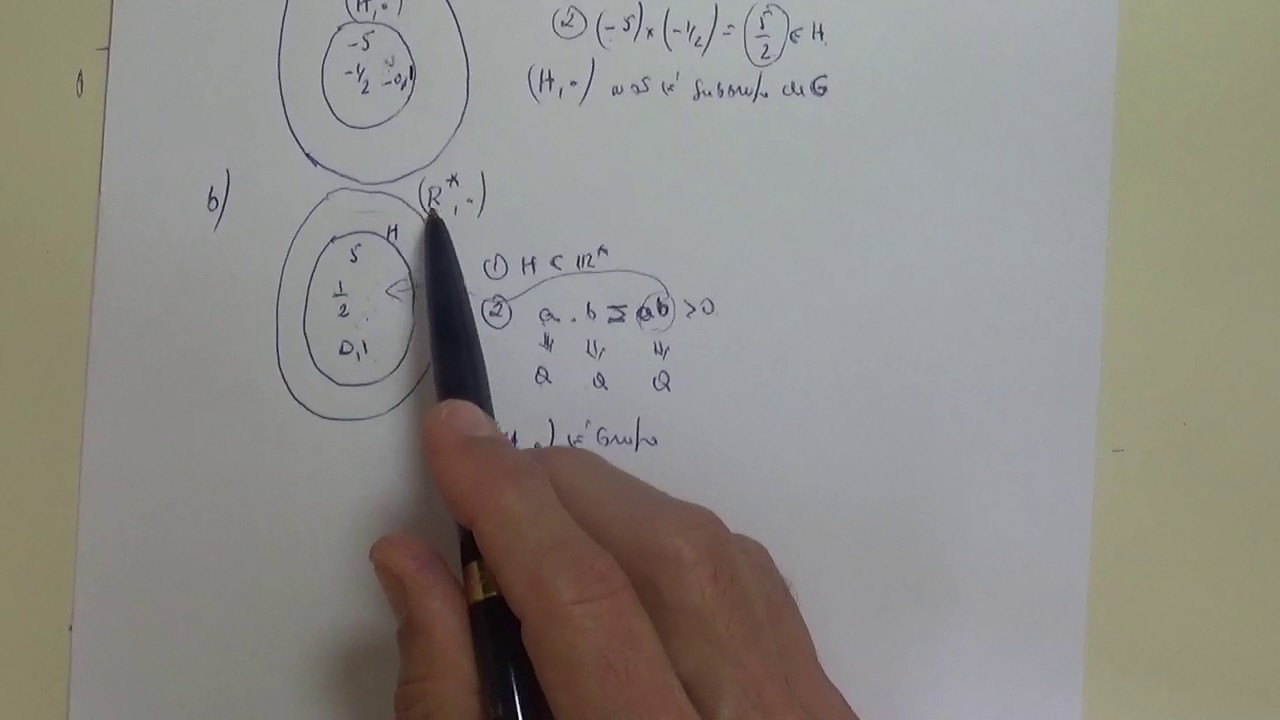 (H, ·)
-5
-1/2 -0,1
② (-5) × (-1/2) = (5/2) ∈ H
(H, ·) não é subgrupo de G
b)
(R*, ·)
H
5
1/2
0,1
① H ⊂ IR*
② a . b = ab > 0
Q Q Q
) é Grupo